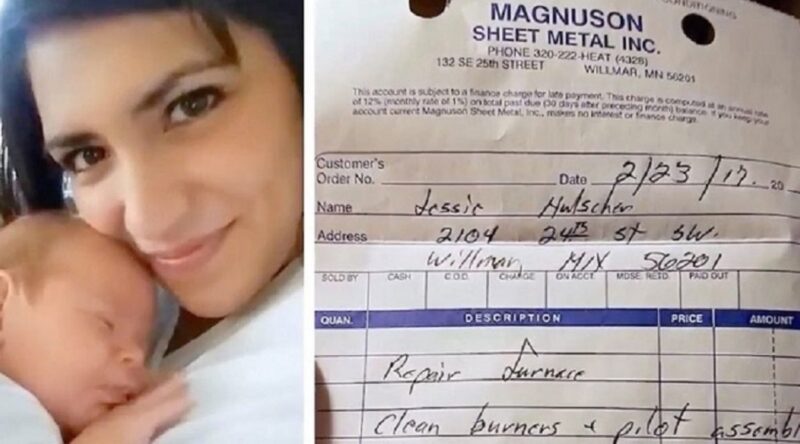 CONDITIONING
MAGNUSON
SHEET METAL INC.
PHONE 320-222-HEAT (4328)
132 SE 25th STREET WILLMAR, MN 56201
This account is subject to a finance charge for late payment. This charge is computed at an annual rate
of 12% (monthly rate of 1%) on total past due (30 days after preceding month) balance. If you keep your
account current Magnuson Sheet Metal, Inc., makes no interest or finance charge.
Customer's
Order No. Date 2/23/17 20
Name Jessie Hulscher
Address 2104 24th St SW.
Willmar MN 56201
SOLD BY CASH C.O.D. CHARGE ON ACCT. MDSE. RETD. PAID OUT
QUAN. DESCRIPTION PRICE AMOUNT
Repair furnace
Clean burners + pilot assembl